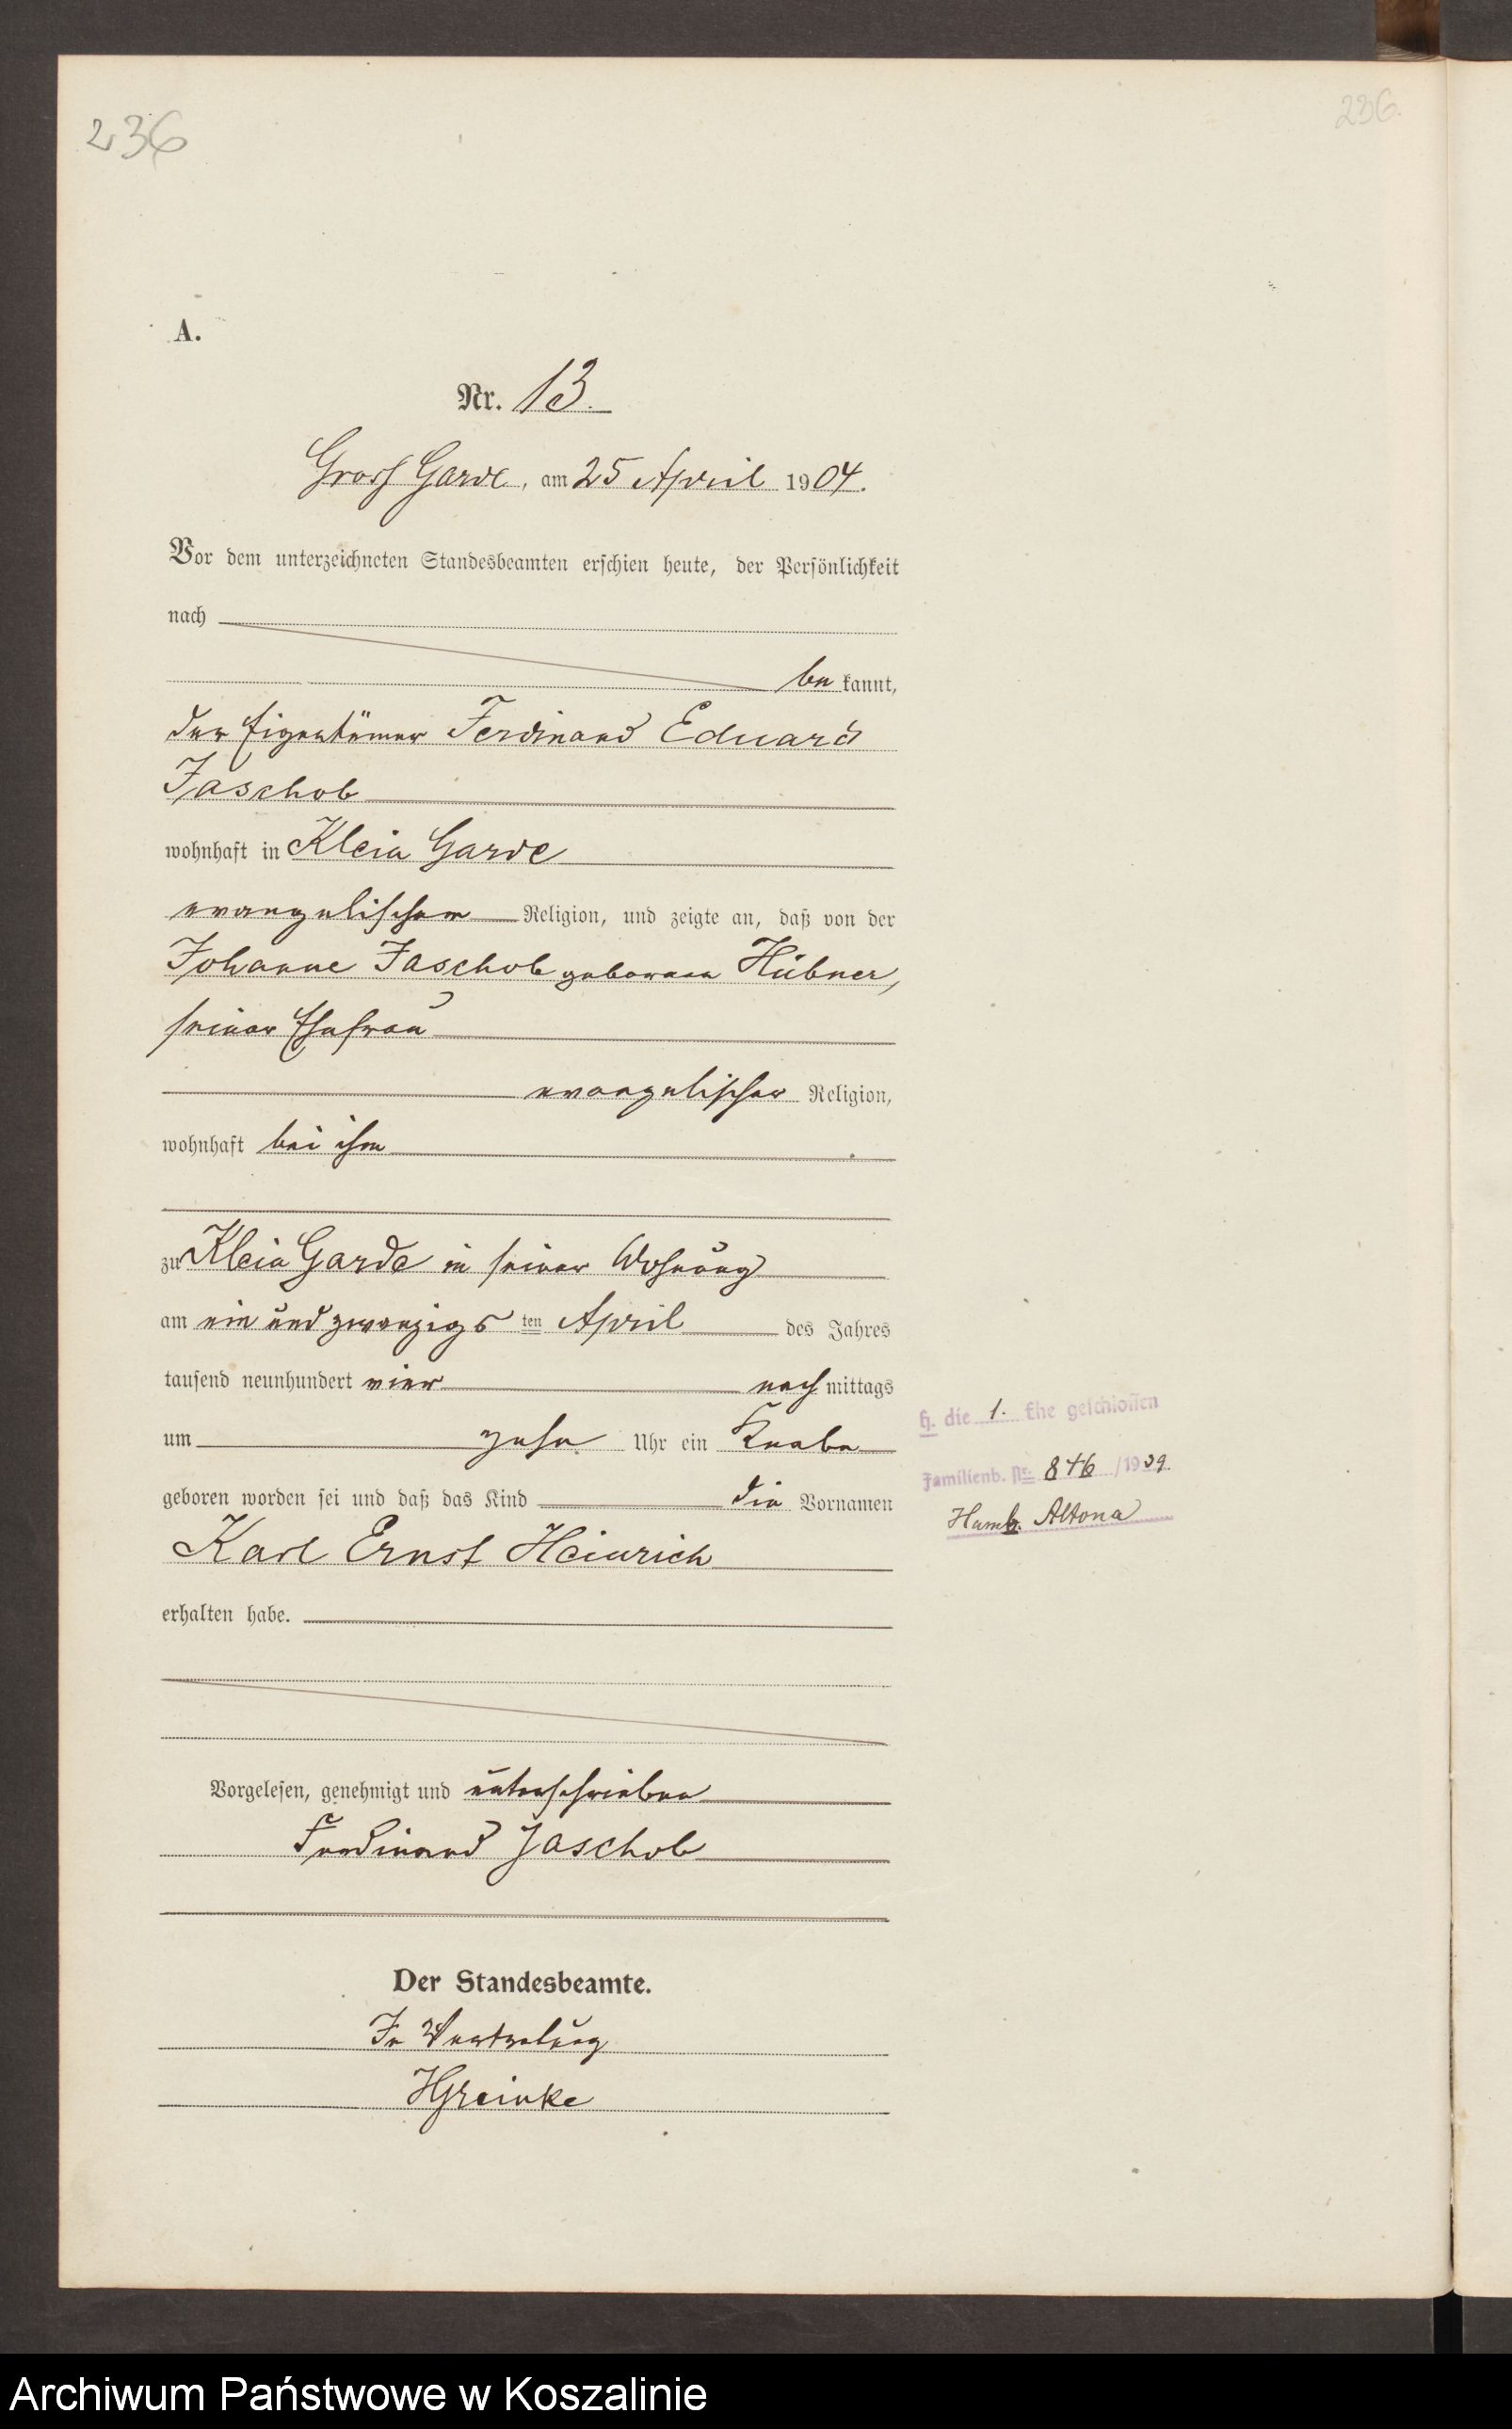 236
236.
A.
Nr. 13.
Gross Garde, am 25 April 1904.
Vor dem unterzeichneten Standesbeamten erschien heute, der Persönlichkeit
nach
be kannt,
der Eigentümer Ferdinand Eduard
Jaschob
wohnhaft in Klein Garde
evangelischer Religion, und zeigte an, daß von der
Johanne Jaschob geborenen Hübner,
seiner Ehefrau
evangelischer Religion,
wohnhaft bei ihm
zu Klein Garde in seiner Wohnung
am ein und zwanzigs ten April des Jahres
tausend neunhundert vier nach mittags
um zehn Uhr ein Knabe
geboren worden sei und daß das Kind die Vornamen
Karl Ernst Heinrich
erhalten habe.
H. die 1. Ehe geschlossen
Familienb. Nr. 846 /1939
Hamb. Altona
Vorgelesen, genehmigt und unterschrieben
Ferdinand Jaschob
Der Standesbeamte.
In Vertretung
HGreinke
Archiwum Państwowe w Koszalinie